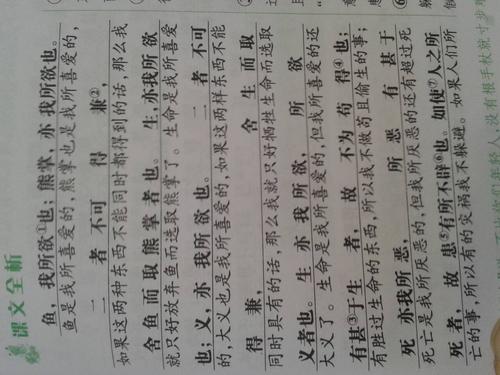 课文全析
鱼，我所欲①也；熊掌，亦我所欲也。
鱼是我所喜爱的，熊掌也是我所喜爱的，
二者不可得兼②，
如果这两种东西不能同时都得到的话，那么我
舍鱼而取熊掌者也。生，亦我所欲
就只好放弃鱼而选取熊掌了。生命是我所喜爱
也；义，亦我所欲也。二者不可
的，大义也是我所喜爱的，如果这两样东西不能
得兼，舍生而取
同时具有的话，那么我就只好牺牲生命而选取
义者也。生亦我所欲，所欲
大义了。生命是我所喜爱的，但我所喜爱的还
有甚③于生者，故不为苟得④也；
有胜过生命的东西，所以我不做苟且偷生的事；
死亦我所恶，所恶有甚于
死亡是我所厌恶的，但我所厌恶的还有超过死
死者，故患⑤有所不辟⑥也。如使⑦人之所
亡的事，所以有的灾祸我不躲避。如果人们所